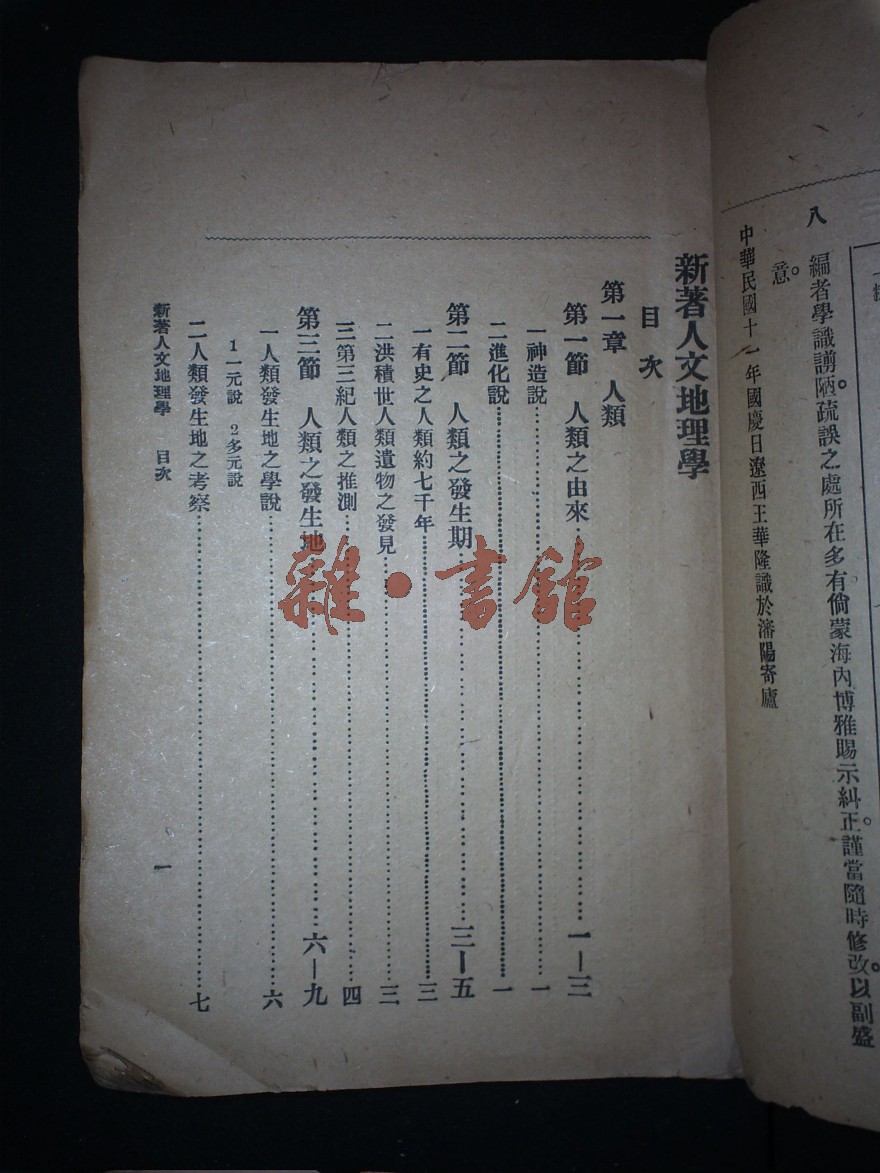 八 編者學識謭陋。疏誤之處所在多有倘蒙海內博雅賜示糾正。謹當隨時修改。以副盛
意。
中華民國十一年國慶日遼西王華隆識於瀋陽寄廬
新著人文地理學
目次
第一章 人類
第一節 人類之由來 一—三
一神造說 一
二進化說 一
第二節 人類之發生期 三—五
一有史之人類約七千年 三
二洪積世人類遺物之發見 三
三第三紀人類之推測 四
第三節 人類之發生地 六—九
一人類發生地之學說 六
1一元說 2多元說
二人類發生地之考察 七
新著人文地理學 目次 一
雜·書館